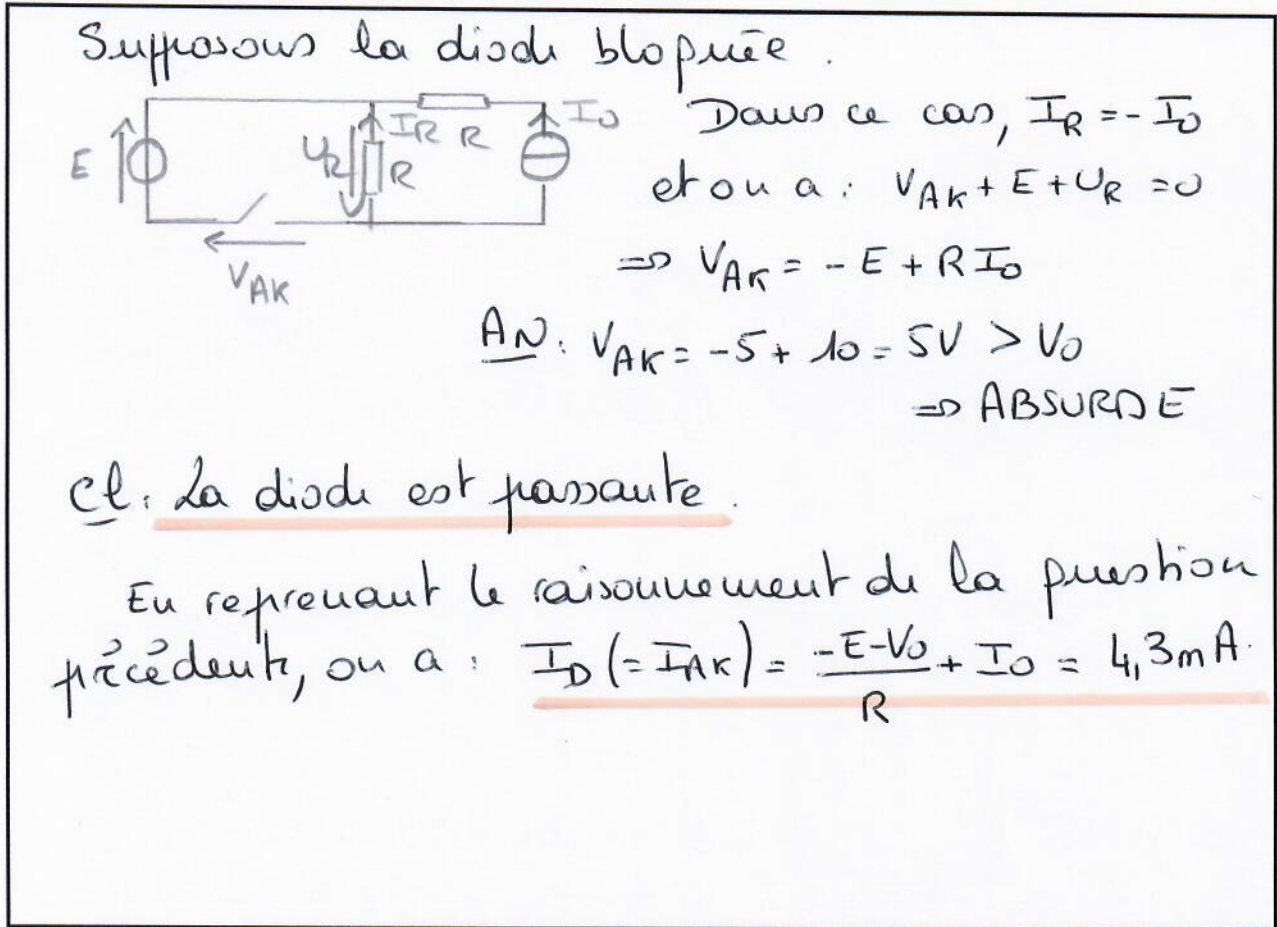 Supposons la diode bloquée.
E
U_R
I_R
R
R
I_0
V_AK
Dans ce cas, I_R = - I_0
et on a : V_AK + E + U_R = 0
⇒ V_AK = - E + R I_0
AN : V_AK = -5 + 10 = 5V > V_0
⇒ ABSURDE
Cl : La diode est passante.
En reprenant le raisonnement de la question
précédente, on a : I_D (= I_AK) = (-E-V_0)/R + I_0 = 4,3mA.